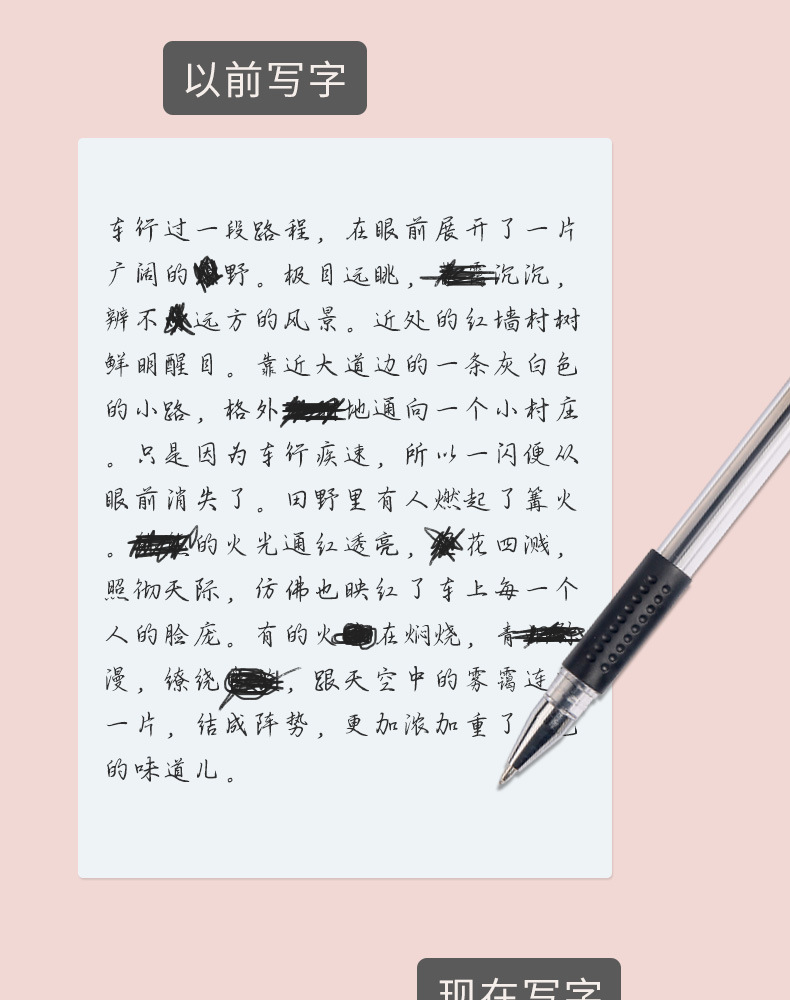 以前写字
车行过一段路程，在眼前展开了一片
广阔的野。极目远眺，沉沉，
辨不远方的风景。近处的红墙村树
鲜明醒目。靠近大道边的一条灰白色
的小路，格外地通向一个小村庄
。只是因为车行疾速，所以一闪便从
眼前消失了。田野里有人燃起了篝火
。的火光通红透亮，花四溅，
照彻天际，仿佛也映红了车上每一个
人的脸庞。有的火在焖烧，青
漫，缭绕，跟天空中的雾霭连
一片，结成阵势，更加浓加重了
的味道儿。
现在写字